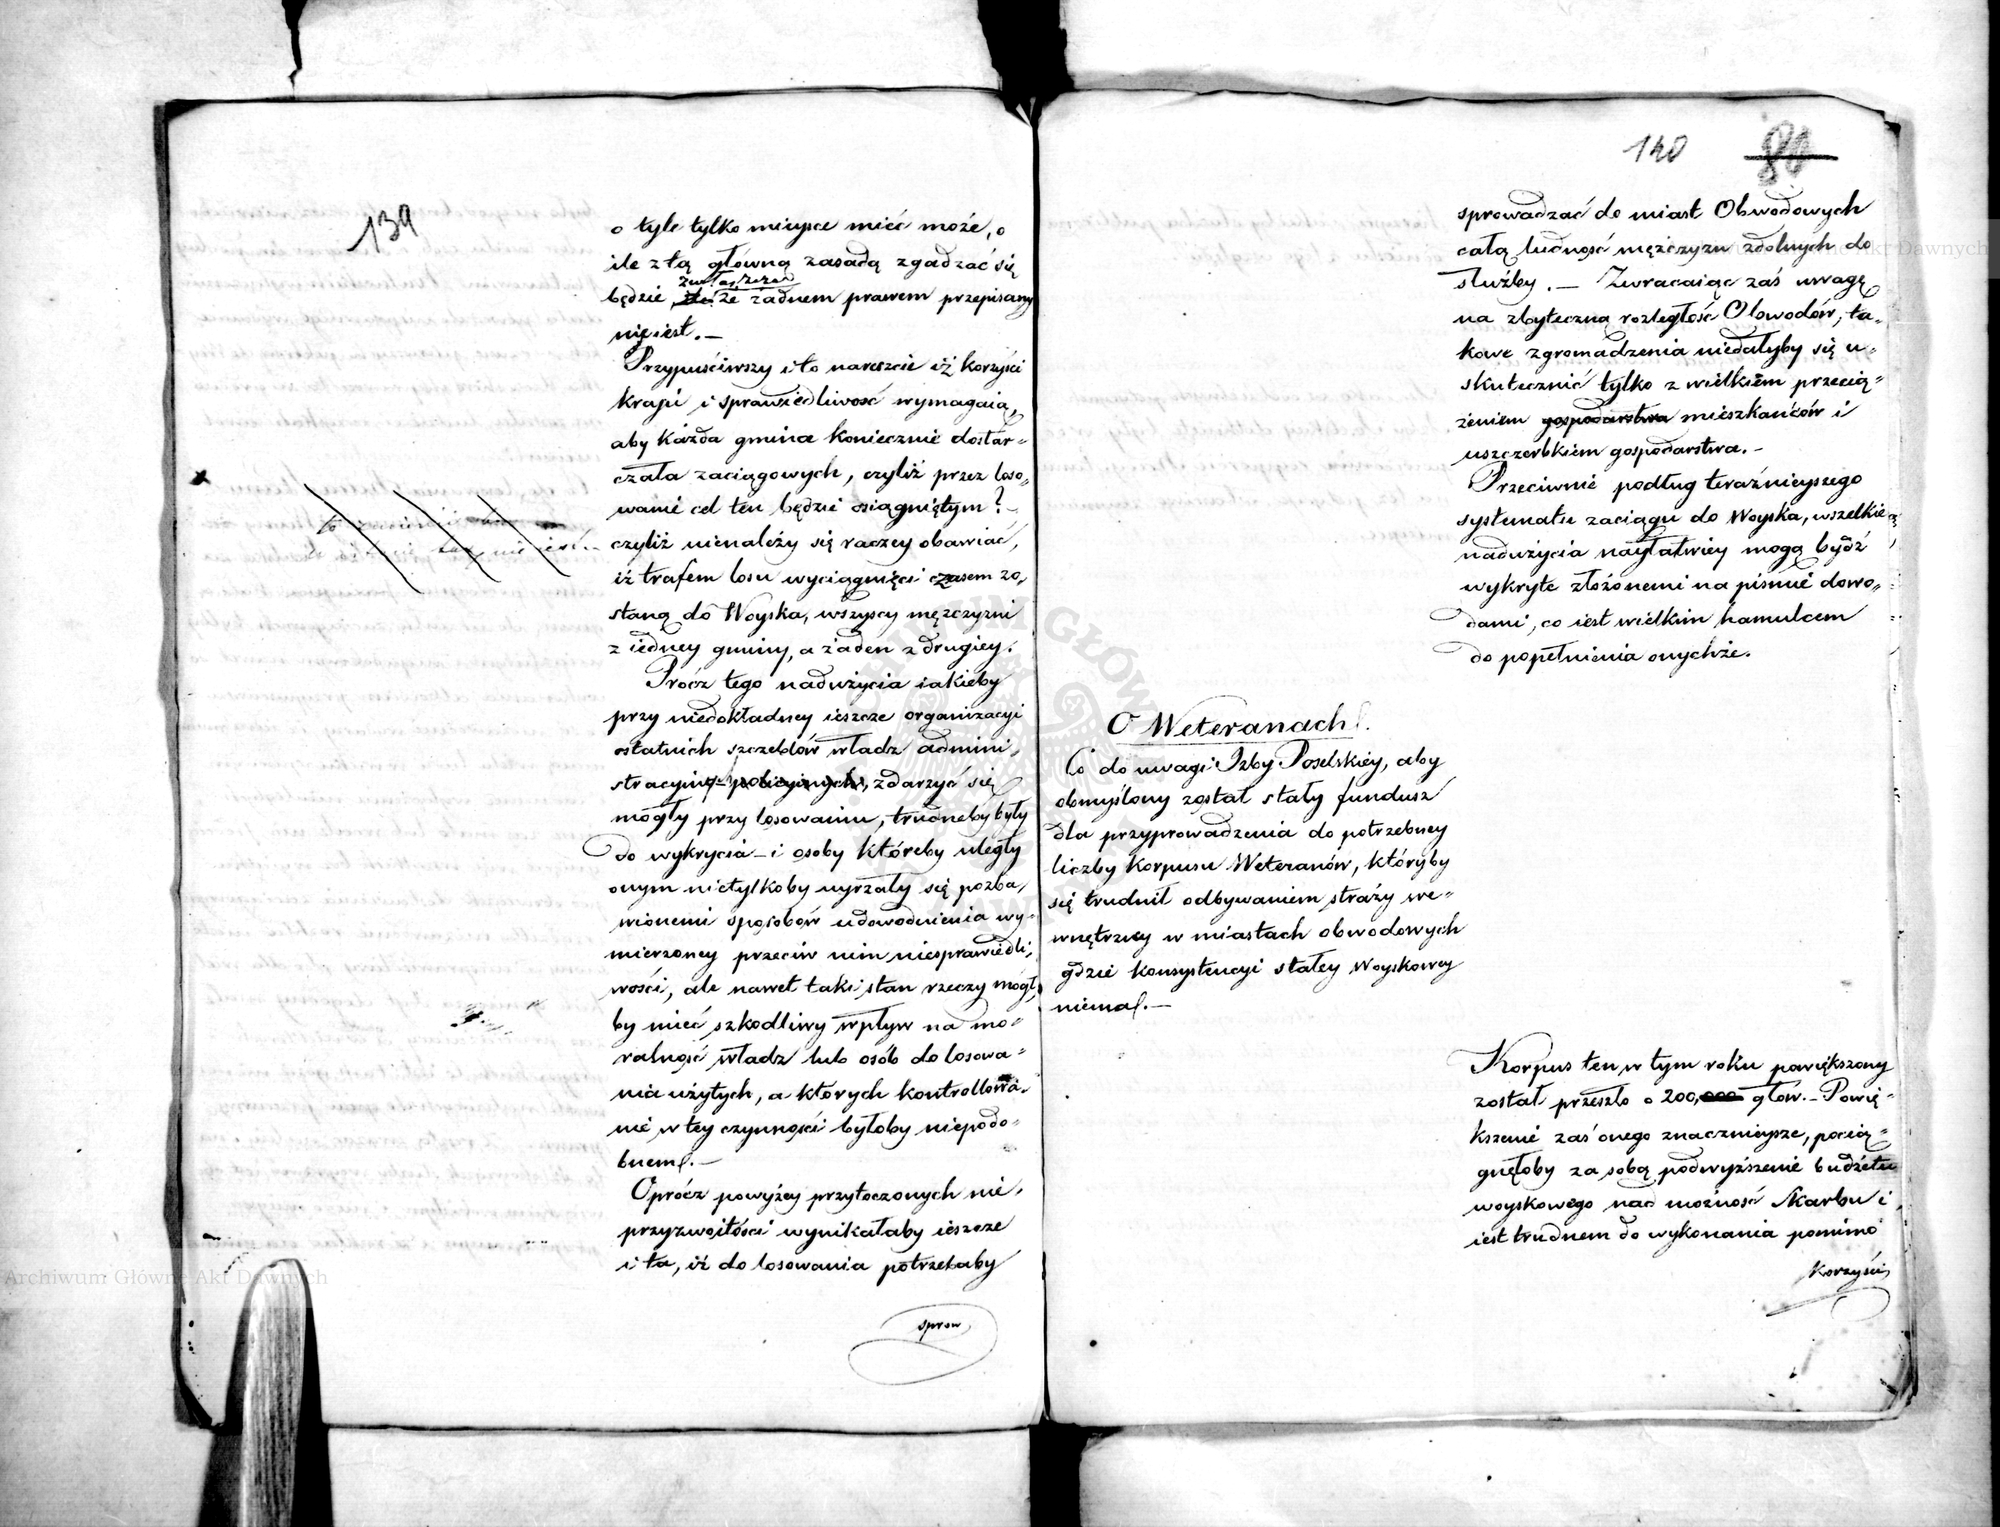 139
o tyle tylko mieysce mieć może, o
ile z tą główną zasadą zgadzać się
zwłaszcza
będzie, że żadnem prawem przepisany
nie iest. —
Przypuściwszy i to nareszcie iż korzyści
kraju i sprawiedliwość wymagaią,
aby każda gmina koniecznie dostar-
czała zaciągowych, czyliż przez loso-
wanie cel ten będzie osiągniętym? -
czyliż nienależy się raczey obawiać,
iż trafem losu wyciągnięci czasem zo-
staną do Woyska, wszyscy mężczyzni
z iedney gminy, a żaden z drugiey.
Prócz tego nadużycia iakieby
przy niedokładney ieszcze organizacyi
ostatnich szczeblów władz admini-
stracyiny policyinych, zdarzyć się
mogły przy losowaniu, trudneby były
do wykrycia – i osoby któreby uległy
onym nietylkoby uyrzały się pozba-
wionemi sposobów udowodnienia wy-
mierzoney przeciw nim niesprawiedli-
wości, ale nawet taki stan rzeczy mógł-
by mieć szkodliwy wpływ na mo-
ralność władz lub osób do losowa-
nia użytych, a których kontrollowa-
nie w tey czynności byłoby niepodo-
bnem. —
Oprócz powyżey przytoczonych nie-
przyzwoitości wynikałaby ieszcze
i ta, iż do losowania potrzebaby
sprow
140 80
sprowadzać do miast Obwodowych
całą ludność mężczyzn zdolnych do
służby. — Zwracaiąc zaś uwagę
na zbyteczną rozległość Obwodów, ta-
kowe zgromadzenia niedałyby się u-
skutecznić tylko z wielkiem przecią-
żeniem gospodarstwa mieszkańców i
uszczerbkiem gospodarstwa. -
Przeciwnie podług teraźnieyszego
systematu zaciągu do Woyska, wszelkie
nadużycia nayłatwiey mogą bydź
wykryte złożonemi na piśmie dowo-
dami, co iest wielkim hamulcem
do popełnienia onychże.
O Weteranach.
Co do uwagi Izby Poselskiey, aby
obmyślony został stały fundusz
dla przyprowadzenia do potrzebney
liczby Korpusu Weteranów, któryby
się trudnił odbywaniem straży we-
wnętrzney w miastach obwodowych
gdzie konsystencyi stałey Woyskowey
niema. —
Korpus ten w tym roku powiększony
został przeszło o 200,000 głów. – Powię-
kszenie zaś onego znacznieysze, pocią-
gnęłoby za sobą podwyższenie budżetu
woyskowego nad możność Skarbu i
iest trudnem do wykonania pomimo
korzyści
Archiwum Główne Akt Dawnych